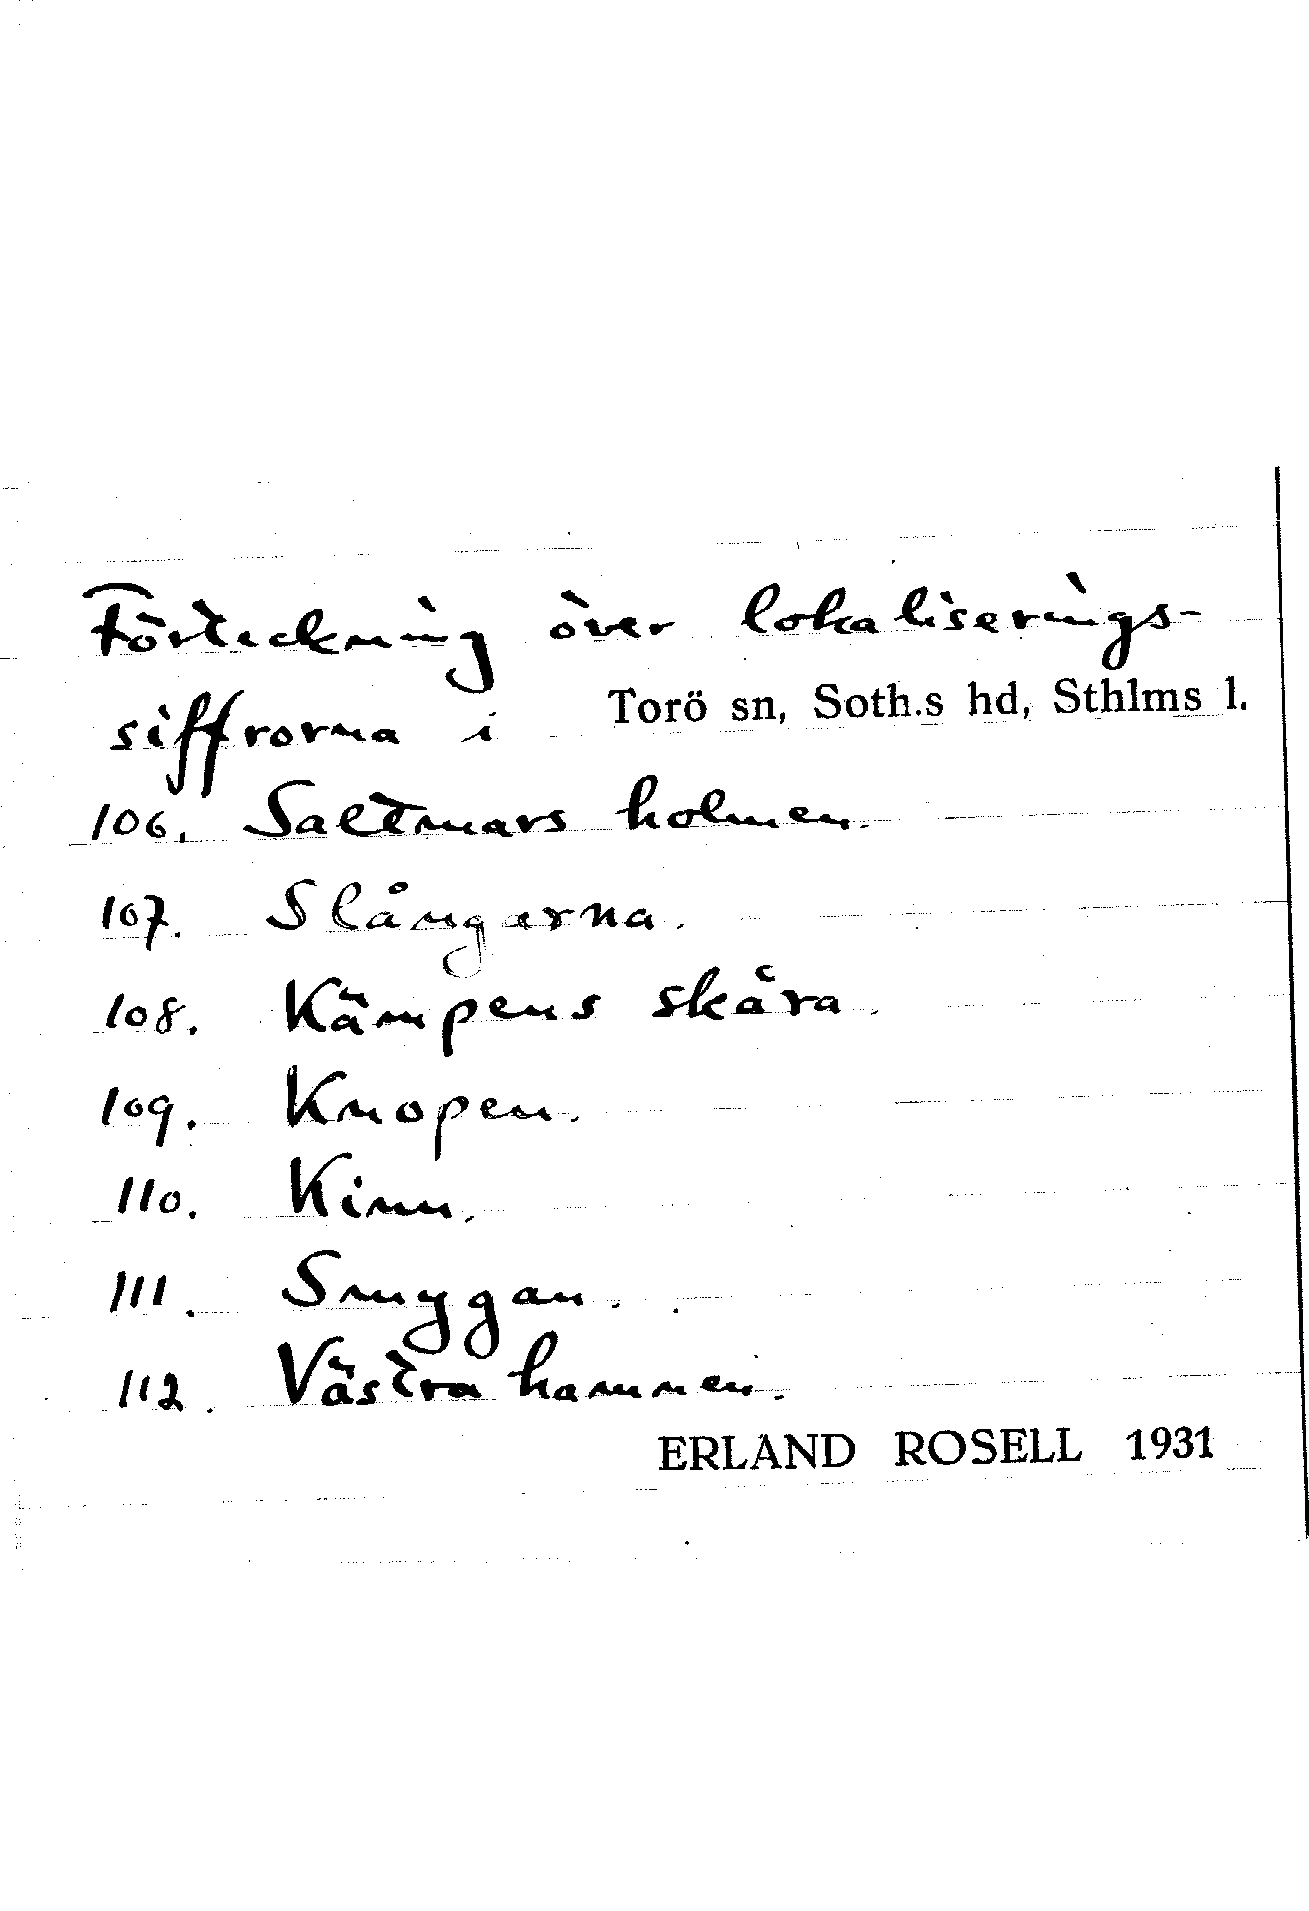 Förteckning över lokaliserings-
siffrorna i Torö sn, Soth.s hd, Sthlms l.
106. Saltmars holmen.
107. Slångarna.
108. Kämpens skära.
109. Knopen.
110. Kinn.
111. Smygan.
112. Västra hamnen.
ERLAND ROSELL 1931